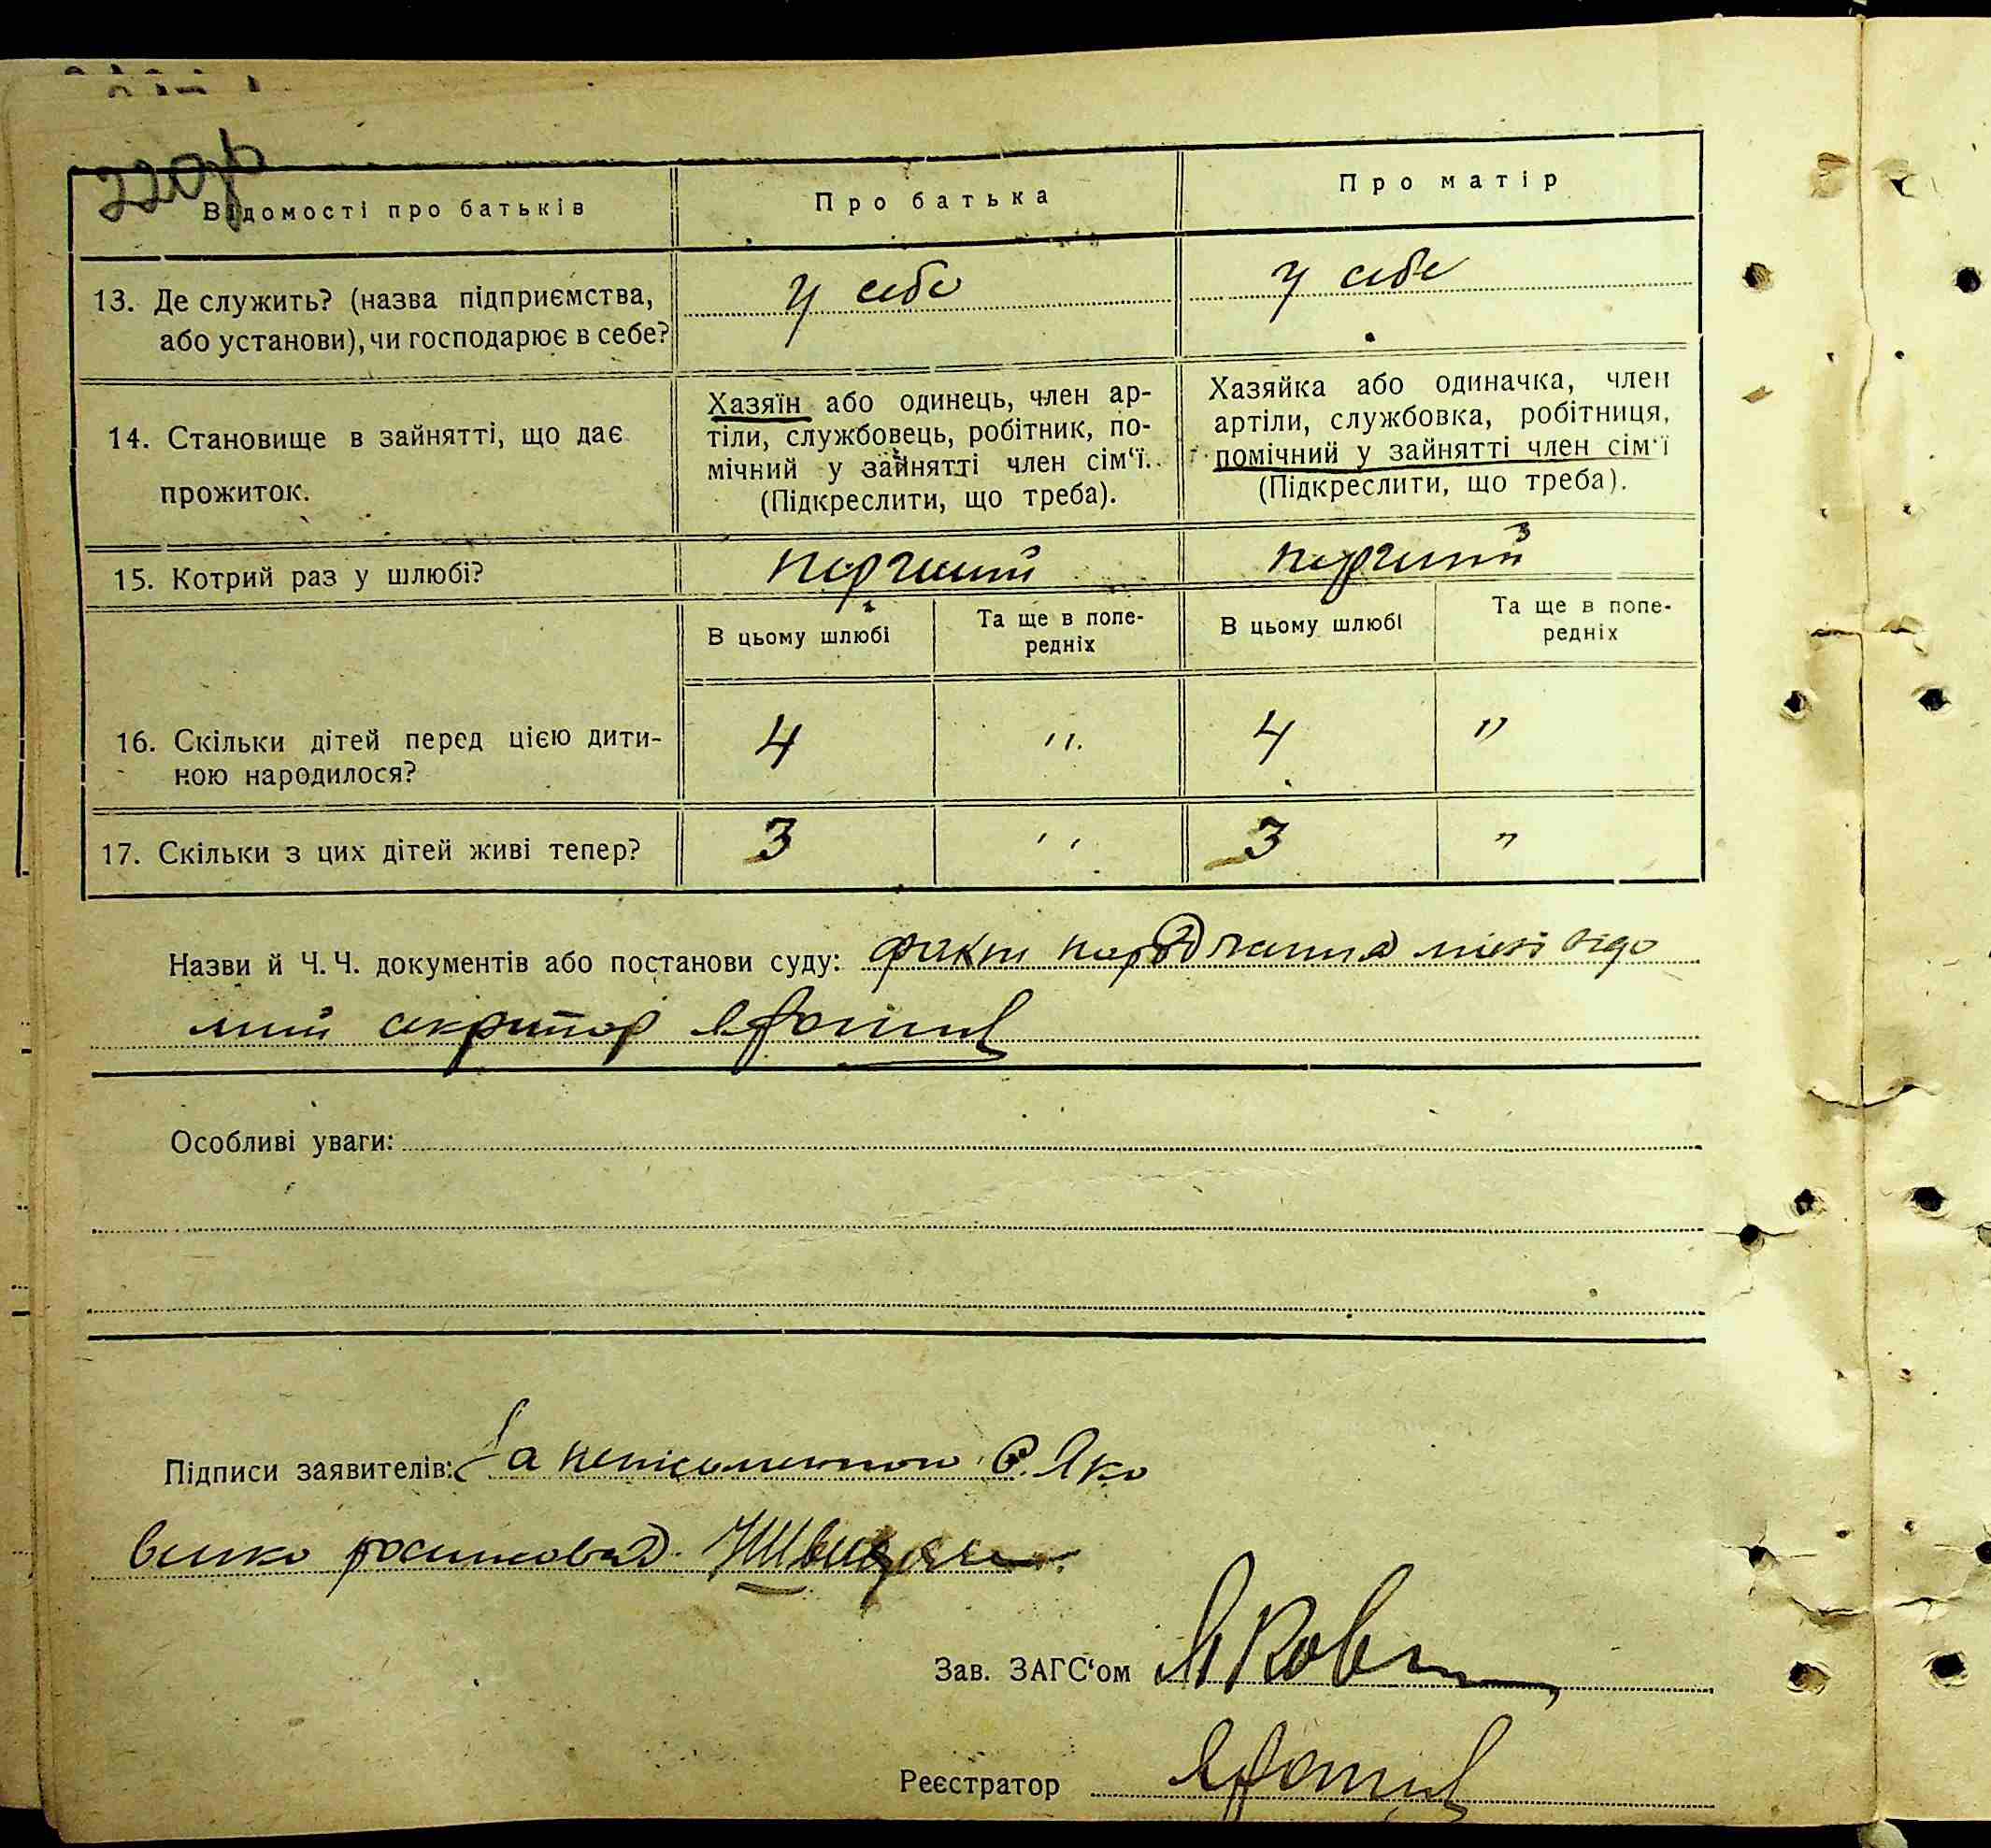 Відомості про батьків
Про батька
Про матір
13. Де служить? (назва підприємства,
або установи), чи господарює в себе?
у себе
у себе
14. Становище в зайнятті, що дає
прожиток.
Хазяїн або одинець, член ар-
тіли, службовець, робітник, по-
мічний у зайнятті член сім‘ї.
(Підкреслити, що треба).
Хазяйка або одиначка, член
артіли, службовка, робітниця,
помічний у зайнятті член сім‘ї
(Підкреслити, що треба).
15. Котрий раз у шлюбі?
перший
перший
В цьому шлюбі
Та ще в попе-
редніх
В цьому шлюбі
Та ще в попе-
редніх
16. Скільки дітей перед цією дити-
ною народилося?
4
"
4
"
17. Скільки з цих дітей живі тепер?
3
"
3
"
Назви й Ч. Ч. документів або постанови суду: факт народження мені відо
мий секритар
Особливі уваги:
Підписи заявителів: За неписьменного Яко
венко росписався
Зав. ЗАГС‘ом
Реєстратор